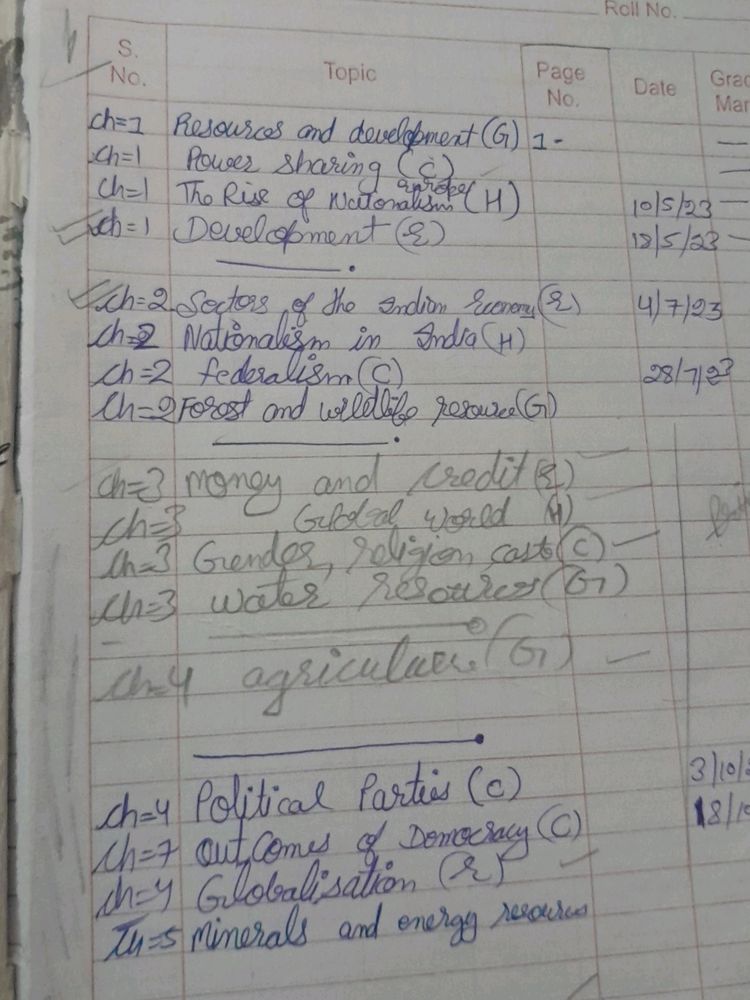 Roll No.
S. No. Topic Page No. Date Grad Mar
ch=1 Resources and development (G) 1-
ch=1 Power sharing (C)
ch=1 The Rise of Nationalism europe (H) 10/5/23
ch=1 Development (E) 18/5/23
ch=2 Sectors of the Indian Economy (E) 4/7/23
ch=2 Nationalism in India (H)
ch=2 federalism (C) 28/7/23
ch=2 Forest and wildlife resource (G)
ch=3 money and credit (E)
ch=3 Global world (H)
ch=3 Gender, religion, caste (C)
ch=3 water resources (G)
ch=4 agriculture (G)
ch=4 Political Parties (C) 3/10/
ch=7 outcomes of Democracy (C) 18/10
ch=4 Globalisation (E)
=5 Minerals and energy resources